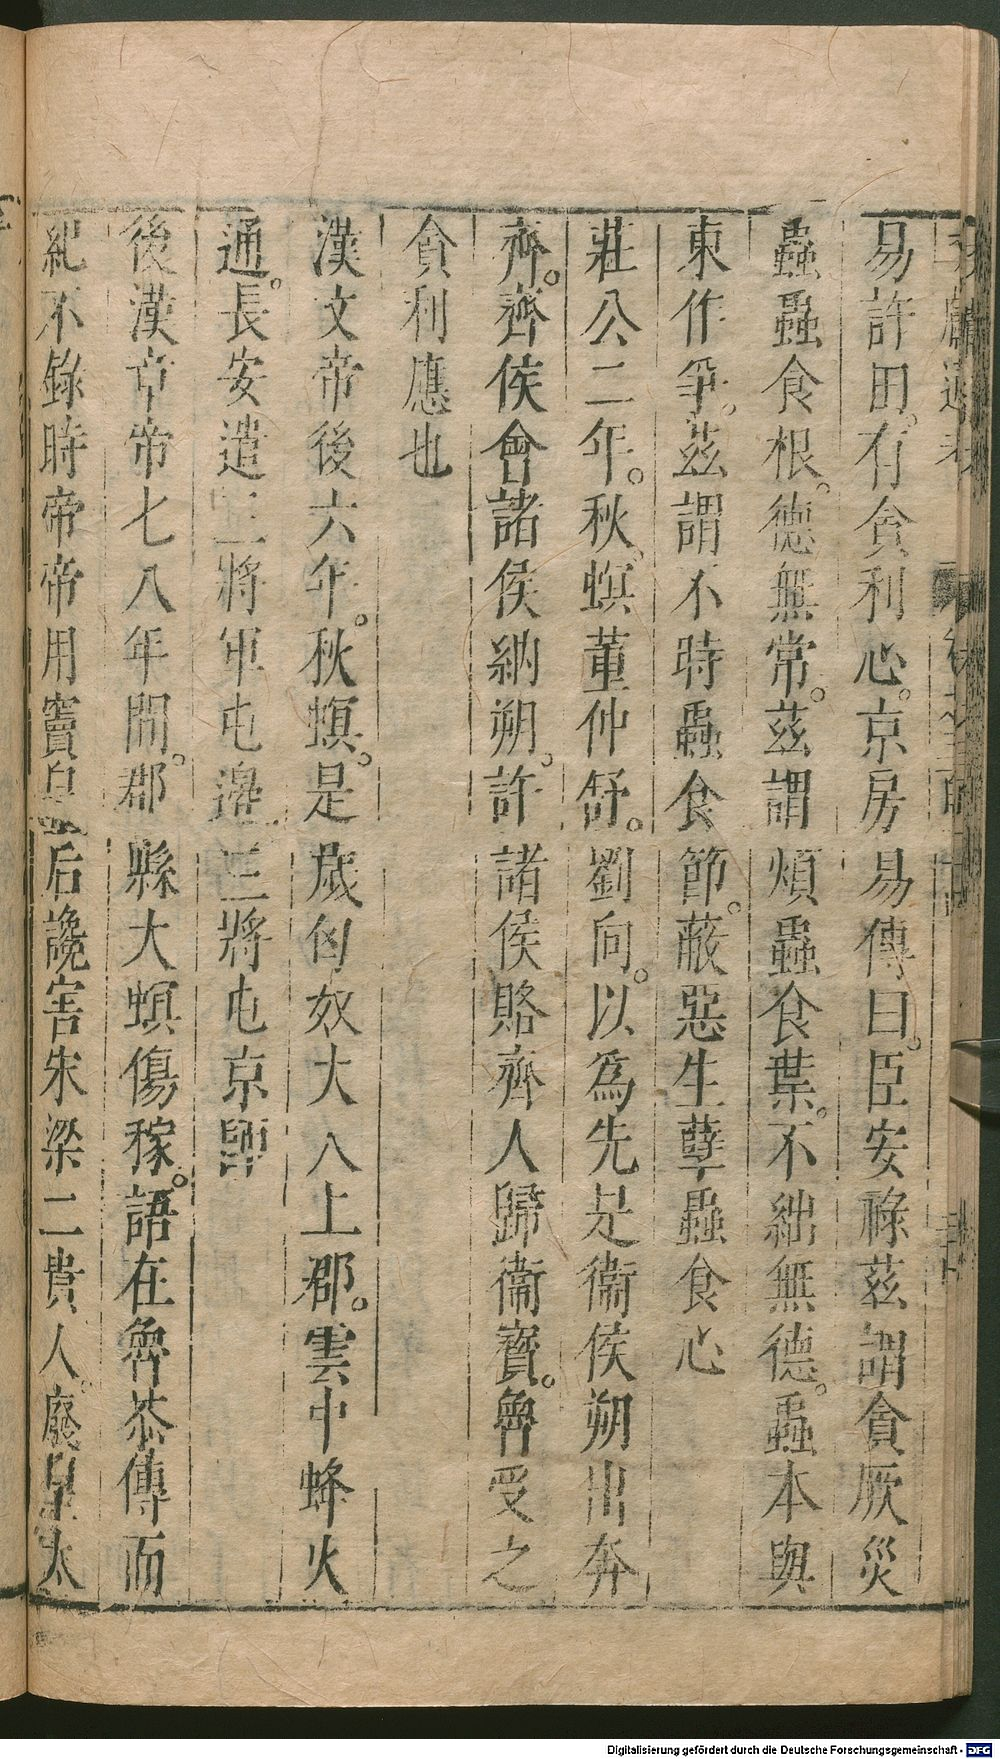 易許田。有貪利心。京房易傳曰。臣安祿茲謂貪厥災
蟲蟲食根。德無常。茲謂煩蟲食葉。不絀無德。蟲本與
東作爭。茲謂不時蟲食節。蔽惡生孽蟲食心
莊公二年。秋螟董仲舒。劉向。以為先是衞侯朔出奔
齊。齊侯會諸侯納朔。許諸侯賂齊人歸衞寶。魯受之
貪利應也
漢文帝後六年。秋螟。是歲匈奴大入上郡。雲中蜂火
通。長安遣三將軍屯邉三將屯京師
後漢章帝七八年間。郡縣大螟傷稼。語在魯恭傳而
紀不錄時帝帝用竇皇后讒害宋梁二貴人。廢皇太
Digitalisierung gefördert durch die Deutsche Forschungsgemeinschaft - DFG